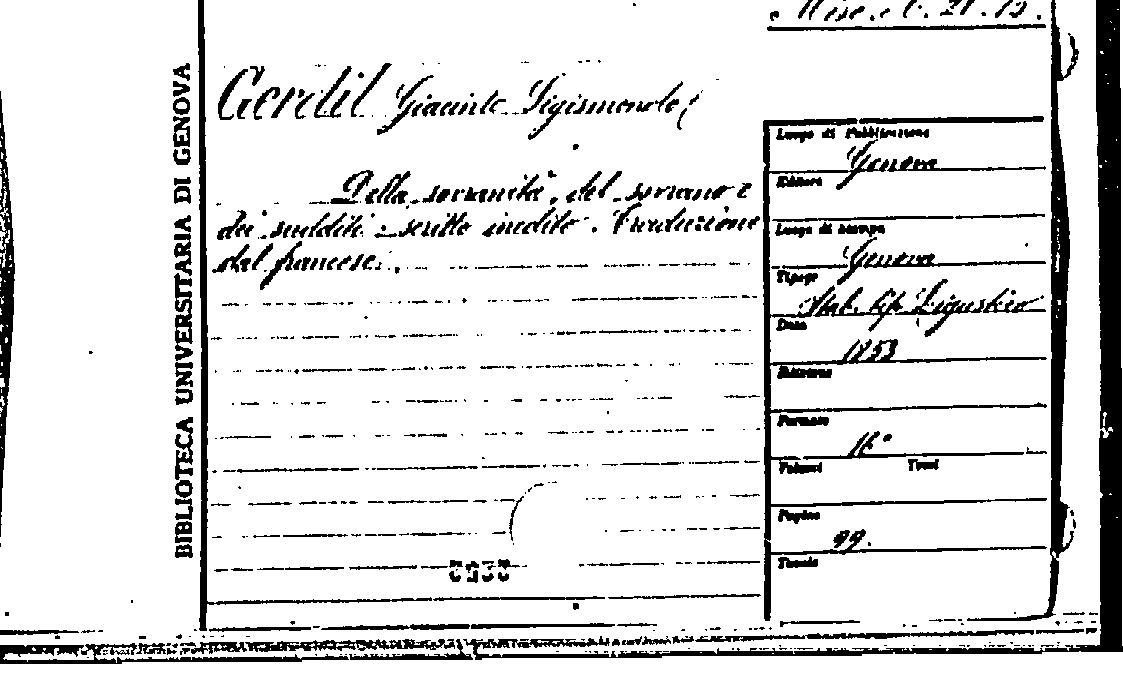 BIBLIOTECA UNIVERSITARIA DI GENOVA
Gerdil Giacinto Sigismondo
Della sovranità, del sovrano e
dei sudditi : scritto inedito. Traduzione
dal francese.
Luogo di Pubblicazione
Genova
Editore
Luogo di stampa
Genova
Tipogr
Stab. tip. Ligustico
Data
1853
Edizione
Formato
16°
Volumi Tomi
Pagine
99.
Tavole